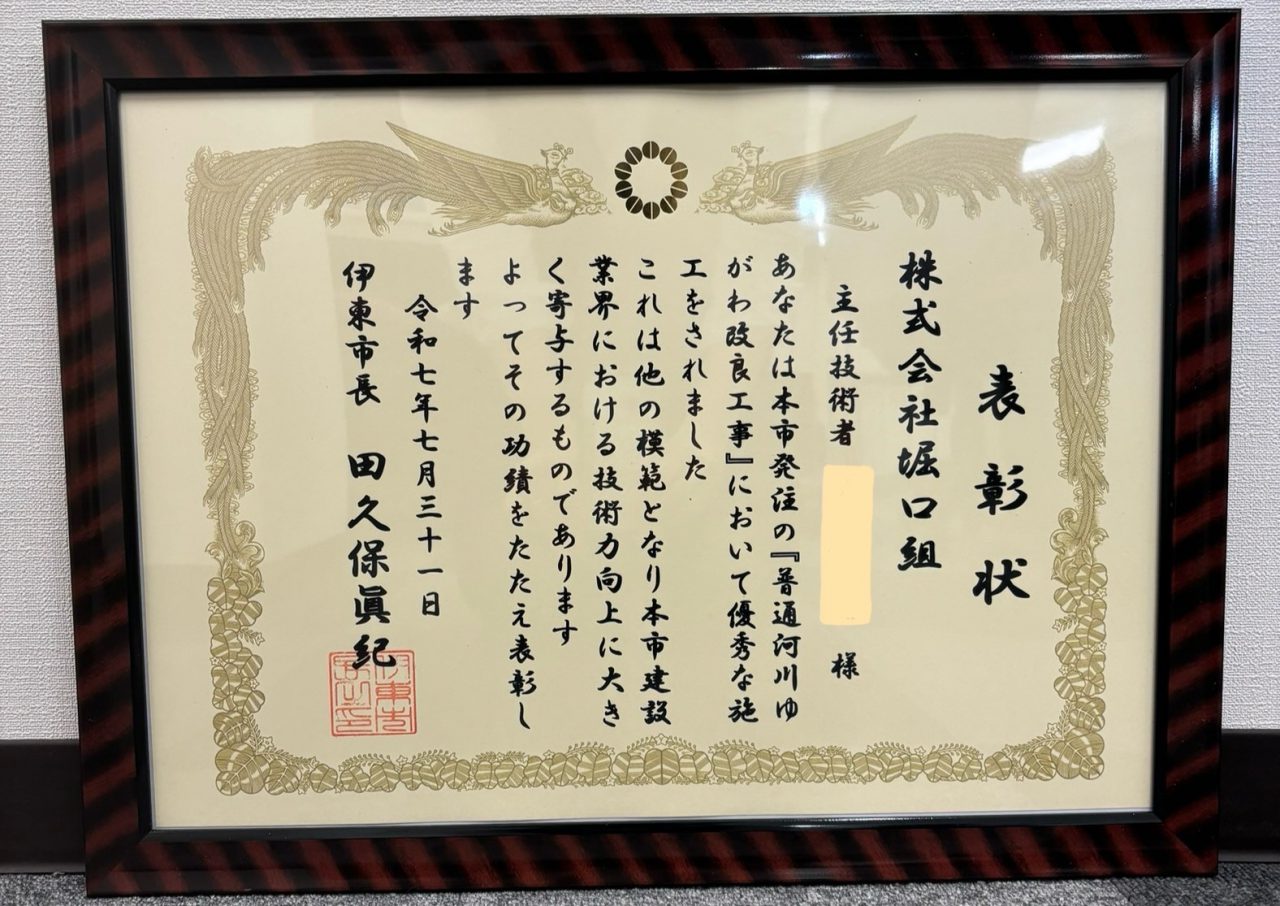 表彰状
株式会社堀口組
主任技術者 様
あなたは本市発注の『普通河川ゆ
がわ改良工事』において優秀な施
工をされました
これは他の模範となり本市建設
業界における技術力向上に大き
く寄与するものであります
よってその功績をたたえ表彰し
ます
令和七年七月三十一日
伊東市長 田久保眞紀
伊東市
長之印